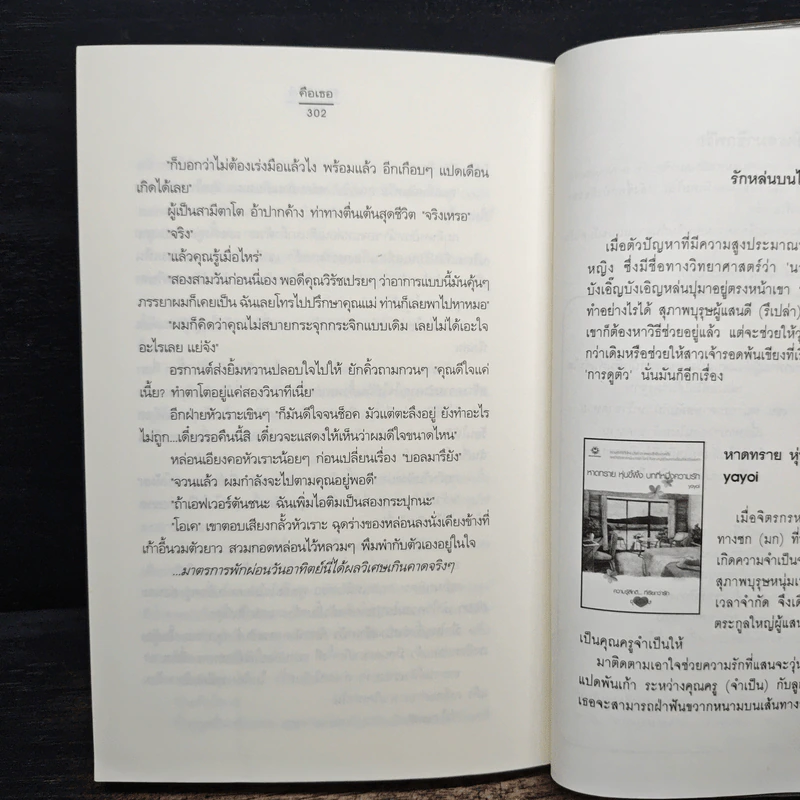 คือเธอ
302
"ก็บอกว่าไม่ต้องเร่งมือแล้วไง พร้อมแล้ว อีกเกือบๆ แปดเดือน
เกิดได้เลย"
ผู้เป็นสามีตาโต อ้าปากค้าง ท่าทางตื่นเต้นสุดชีวิต "จริงเหรอ"
"จริง"
"แล้วคุณรู้เมื่อไหร่"
"สองสามวันก่อนนี่เอง พอดีคุณวิรัชเปรยๆ ว่าอาการแบบนี้มันคุ้นๆ
ภรรยาผมก็เคยเป็น ฉันเลยโทรไปปรึกษาคุณแม่ ท่านก็เลยพาไปหาหมอ"
"ผมก็คิดว่าคุณไม่สบายกระจุกกระจิกแบบเดิม เลยไม่ได้เอะใจ
อะไรเลย แย่จัง"
อรกานต์ส่งยิ้มหวานปลอบใจไปให้ ยักคิ้วถามกวนๆ "คุณดีใจแค่
เนี้ย? ทำตาโตอยู่แค่สองวินาทีเนี่ย"
อีกฝ่ายหัวเราะเขินๆ "ก็มันดีใจจนช็อค มัวแต่ตะลึงอยู่ ยังทำอะไร
ไม่ถูก...เดี๋ยวรอคืนนี้สิ เดี๋ยวจะแสดงให้เห็นว่าผมดีใจขนาดไหน"
หล่อนเอียงคอหัวเราะน้อยๆ ก่อนเปลี่ยนเรื่อง "บอลมารึยัง"
"จวนแล้ว ผมกำลังจะไปตามคุณอยู่พอดี"
"ถ้าเอฟเวอร์ตันชนะ ฉันเพิ่มไอติมเป็นสองกระปุกนะ"
"โอเค" เขาตอบเสียงกลั้วหัวเราะ ฉุดร่างของหล่อนลงนั่งเคียงข้างที่
เก้าอี้นวมตัวยาว สวมกอดหล่อนไว้หลวมๆ พึมพำกับตัวเองอยู่ในใจ
...มาตรการพักผ่อนวันอาทิตย์นี่ได้ผลวิเศษเกินคาดจริงๆ
รักหล่นบนไ
เมื่อตัวปัญหาที่มีความสูงประมาณ
หญิง ซึ่งมีชื่อทางวิทยาศาสตร์ว่า 'น
บังเอิ๊ญบังเอิญหล่นปุมาอยู่ตรงหน้าเขา
ทำอย่างไรได้ สุภาพบุรุษผู้แสนดี (รึเปล่า)
เขาก็ต้องหาวิธีช่วยอยู่แล้ว แต่จะช่วยให้วุ
กว่าเดิมหรือช่วยให้สาวเจ้ารอดพ้นเขียงที่เรี
'การดูตัว' นั่นมันก็อีกเรื่อง
หาดทราย หุ่นขี้ผึ้ง บทที่หนึ่งความรัก
yayoi
หาดทราย หุ่
yayoi
เมื่อจิตรกรห
ทางซก (มก) ที่
เกิดความจำเป็น
สุภาพบุรุษหนุ่ม
เวลาจำกัด จึงเ
ตระกูลใหญ่ผู้แสน
เป็นคุณครูจำเป็นให้
มาติดตามเอาใจช่วยความรักที่แสนจะวุ่น
แปดพันเก้า ระหว่างคุณครู (จำเป็น) กับลู
เธอจะสามารถฝ่าฟันขวากหนามบนเส้นทาง